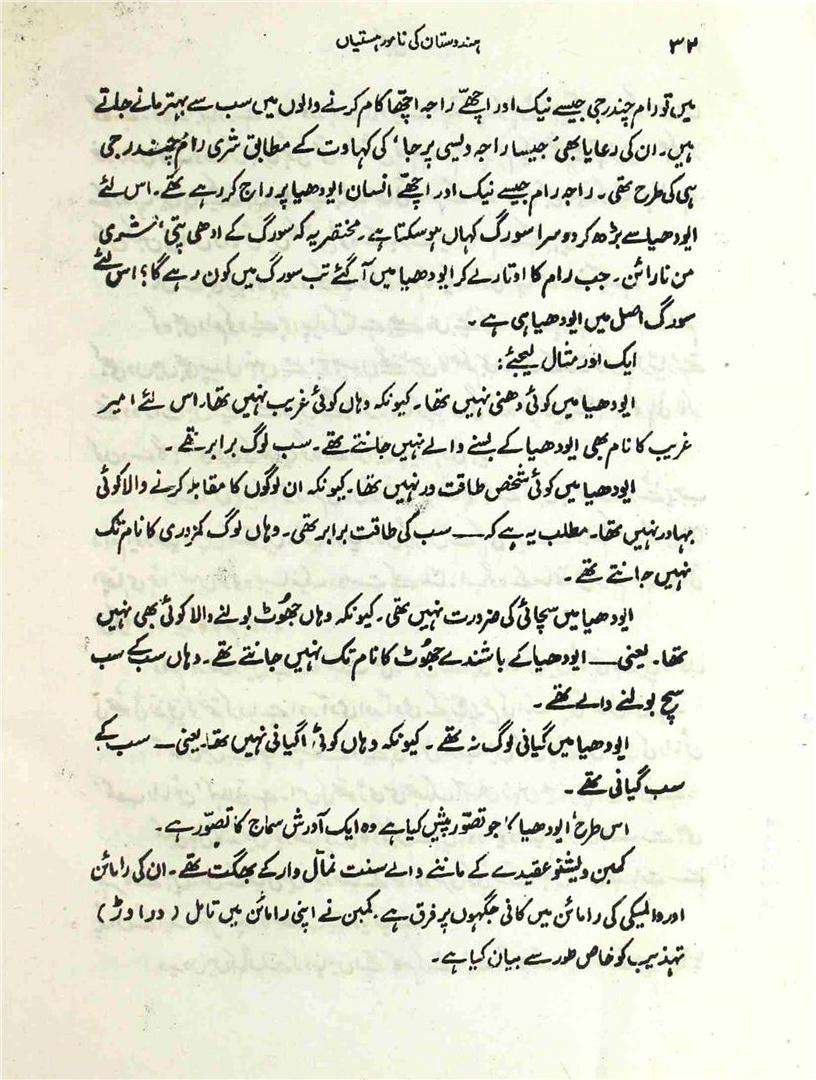 ۳۲
ہندوستان کی نامور ہستیاں
میں تو رام چندر جی جیسے نیک اور اچھے راجہ اچھا کام کرنے والوں میں سب سے بہتر مانے جاتے
ہیں۔ ان کی رعایا بھی 'جیسا راجہ ویسی پرجا' کی کہاوت کے مطابق شری رام چندر جی
ہی کی طرح تھی۔ راجہ رام جیسے نیک اور اچھے انسان ایودھیا پر راج کر رہے تھے۔ اس لئے
ایودھیا سے بڑھ کر دوسرا سورگ کہاں ہو سکتا ہے۔ مختصر یہ کہ سورگ کے ادھی پتی 'شری
من نارائن۔ جب رام کا اوتار لے کر ایودھیا میں آ گئے تب سورگ میں کون رہے گا؟ اس لئے
سورگ اصل میں ایودھیا ہی ہے۔
ایک اور مثال لیجئے:
ایودھیا میں کوئی دھنی نہیں تھا۔ کیونکہ وہاں کوئی غریب نہیں تھا۔ اس لئے امیر
غریب کا نام بھی ایودھیا کے بسنے والے نہیں جانتے تھے۔ سب لوگ برابر تھے۔
ایودھیا میں کوئی شخص طاقت ور نہیں تھا۔ کیونکہ ان لوگوں کا مقابلہ کرنے والا کوئی
بہادر نہیں تھا۔ مطلب یہ ہے کہ — سب کی طاقت برابر تھی۔ وہاں لوگ کمزوری کا نام تک
نہیں جانتے تھے۔
ایودھیا میں سچائی کی ضرورت نہیں تھی۔ کیونکہ وہاں جھوٹ بولنے والا کوئی بھی نہیں
تھا۔ یعنی — ایودھیا کے باشندے جھوٹ کا نام تک نہیں جانتے تھے۔ وہاں سب کے سب
سچ بولنے والے تھے۔
ایودھیا میں گیانی لوگ نہ تھے۔ کیونکہ وہاں کوئی اگیانی نہیں تھا۔ یعنی — سب کے
سب گیانی تھے۔
اس طرح 'ایودھیا' جو تصّور پیش کیا ہے وہ ایک آدرش سماج کا تصّور ہے۔
کمبن ویشنو عقیدے کے ماننے والے سنت نمّال وار کے بھگت تھے۔ ان کی رامائن
اور والمیکی کی رامائن میں کافی جگہوں پر فرق ہے۔ کمبن نے اپنی رامائن میں تامل (دراوڑ)
تہذیب کو خاص طور سے بیان کیا ہے۔